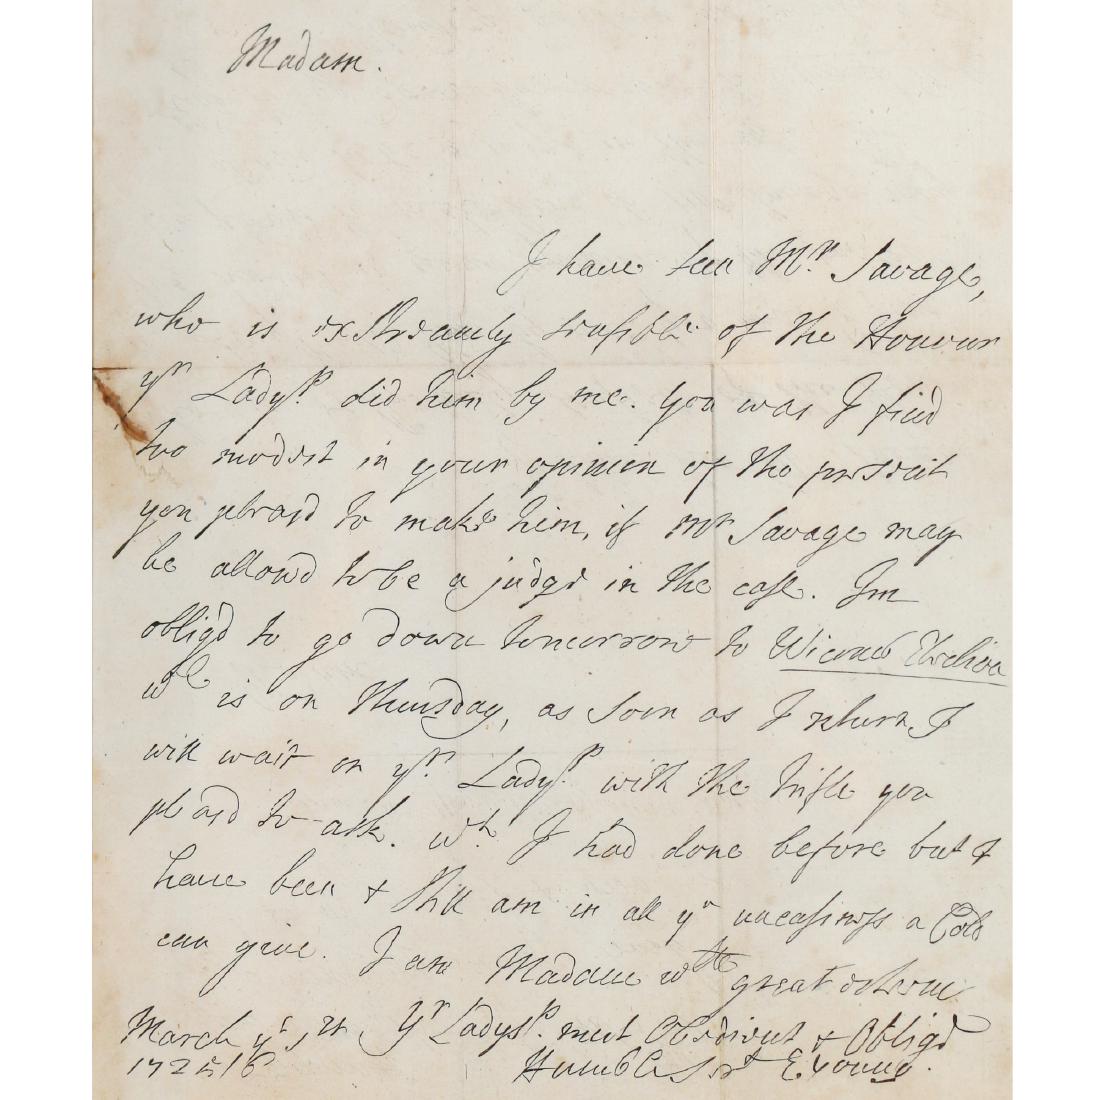 Madam.
I have seen Mr. Savage,
who is extreamly sensible of the Honour
yr Ladysp. did him by me. you was I find
too modest in your opinion of the present
you pleasd to make him, if mr Savage may
be allowd to be a judge in the case. Im
obligd to go down tomorrow to Election
wc is on Thursday, as soon as I return I
will wait on yr. Ladysp. with the trifle you
pleasd to ask. wh. I had done before but I
have been & still am in all ye uneasiness a Cold
can give. I am Madam wth great esteem
March ye Yr Ladysp. most Obedient & Obligd
1725/6 Humble Srt E. Young.